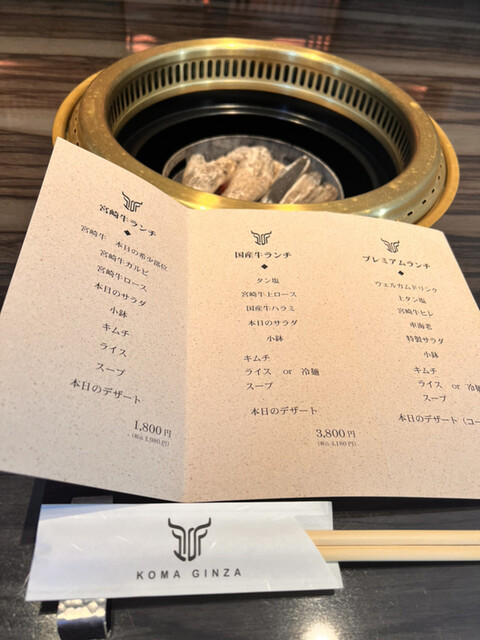 宮崎牛ランチ
宮崎牛 本日の希少部位
宮崎牛カルビ
宮崎牛ロース
本日のサラダ
小鉢
キムチ
ライス
スープ
本日のデザート
1,800円
(税込 1,980円)
国産牛ランチ
タン塩
宮崎牛上ロース
国産牛ハラミ
本日のサラダ
小鉢
キムチ
ライス or 冷麺
スープ
本日のデザート
3,800円
(税込 4,180円)
プレミアムランチ
ウェルカムドリンク
上タン塩
宮崎牛ヒレ
車海老
特製サラダ
小鉢
キムチ
ライス or 冷麺
スープ
本日のデザート (コー
KOMA GINZA